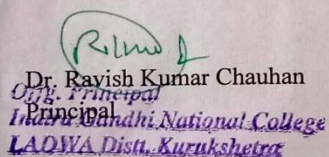 Dr. Rayish Kumar Chauhan
Offg. Principal
Principal
Indira Gandhi National College
LADWA Distt. Kurukshetra